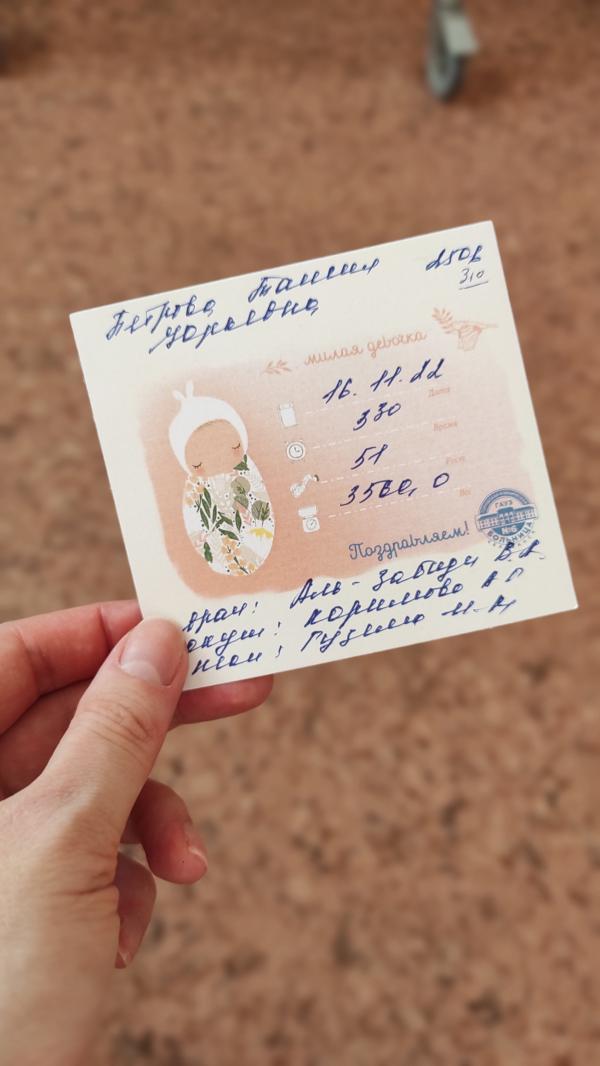 Петрова Таисия
Юрьевна
310
милая девочка
16.11.22
Дата
330
Время
51
Рост
3560,0
Вес
ГАУЗ
БОЛЬНИЦА
№6
Поздравляем!
врач: Аль-Забиди В.А.
акуш: Каримова А Г
неон: Гузина